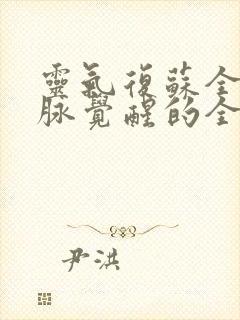 靈氣復蘇全
脉覺醒的全
尹洪